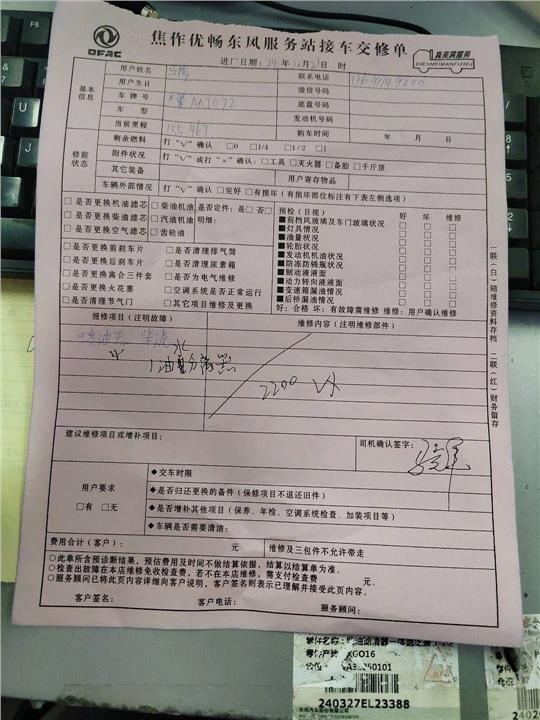 DFAC
焦作优畅东风服务站接车交修单
真美满服务
ZHENMEIMANFUWU
进厂日期：24年10月2日 时
基本信息
用户姓名
联系电话
用户生日
微信号码
车牌号
底盘号码
车型
发动机号码
当前里程 155467
购车时间 年 月 日
修前状态
剩余燃料 打“√”确认 □0 □1/4 □1/2 □1
附件状况 打“√”或打“×”确认：□工具 □灭火器 □备胎 □千斤顶
其它装备 用户寄存物品
车辆外部情况 打“√”确认 □完好 □有损坏（有损坏部位标注有下表左侧选项）
□是否更换机油滤芯 □柴油机油 是否定件：是□ 否□
□是否更换柴油滤芯 □汽油机油 明细：
□是否更换空气滤芯 □齿轮油
□是否更换前刹车片 □是否清理排气筒
□是否更换后刹车片 □是否清理尿素箱
□是否更换离合三件套 □是否为电气维修
□是否更换火花塞 □空调系统是否正常运行
□是否清理节气门 □其它项目维修及更换
预检（目视） 好 坏 维修
■前挡风玻璃及车门玻璃状况 □ □ □
■灯具情况 □ □ □
■油量状况 □ □ □
■轮胎状况 □ □ □
■发动机机油状况 □ □ □
■防冻防锈瓶状况 □ □ □
■制动液液面 □ □ □
■动力转向液液面 □ □ □
■变速箱漏油情况 □ □ □
■后桥漏油情况 □ □ □
好：合格 坏：有故障需维修 维修：用户确认维修
报修项目（注明故障） 维修内容（注明维修部件）
水
2200
建议维修项目或增补项目：
司机确认签字：
用户要求
□有 □无
◆交车时限
◆是否归还更换的备件（保修项目不退还旧件）
◆是否增补其他项目（保养、年检、空调系统检查、加装项目等）
◆车辆是否需要清油：
费用合计（客户）： 元 维修及三包件不允许带走
○此单所含预诊断结果，预估费用及时间不做结算依据，结算以结算单为准。
○检查出故障在本店维修免收检查费，若不在本店维修，需支付检查费 元。
○服务顾问已将此页内容详细向客户说明，客户签名则表示已理解并接受此页内容。
客户签名： 客户电话： 服务顾问：
一联（白）随维修资料存档 二联（红）财务留存
240327EL23388